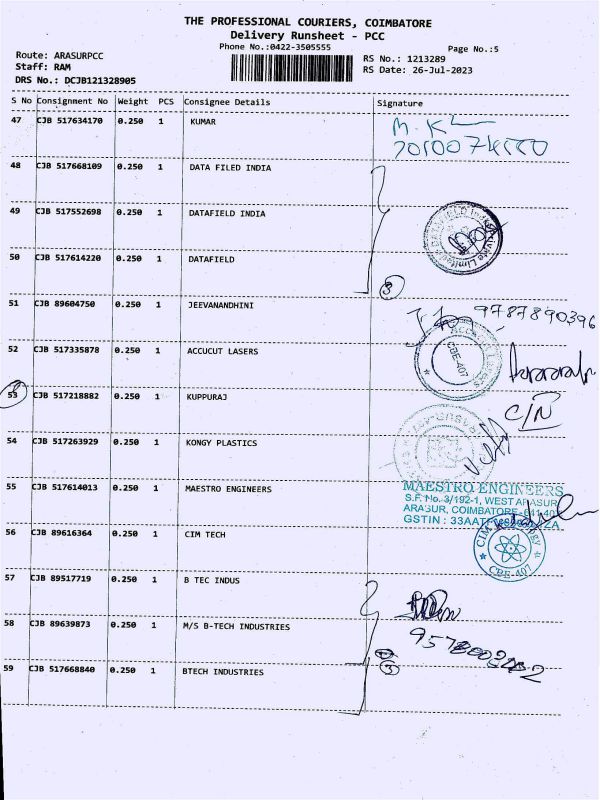 THE PROFESSIONAL COURIERS, COIMBATORE
Delivery Runsheet - PCC
Phone No.:0422-3505555
Page No.:5
Route: ARASURPCC
RS No.: 1213289
Staff: RAM
RS Date: 26-Jul-2023
DRS No.: DCJB121328905
S No Consignment No Weight PCS Consignee Details Signature
47 CJB 517634170 0.250 1 KUMAR
48 CJB 517668109 0.250 1 DATA FILED INDIA
49 CJB 517552698 0.250 1 DATAFIELD INDIA
50 CJB 517614220 0.250 1 DATAFIELD
3
51 CJB 89604750 0.250 1 JEEVANANDHINI
9787890396
52 CJB 517335878 0.250 1 ACCUCUT LASERS
CBE-407
53 CJB 517218882 0.250 1 KUPPURAJ
C/N
54 CJB 517263929 0.250 1 KONGY PLASTICS
55 CJB 517614013 0.250 1 MAESTRO ENGINEERS
MAESTRO ENGINEERS
S.F. No. 3/192-1, WEST ARASUR
ARASUR, COIMBATORE-641 407
GSTIN : 33AAT
56 CJB 89616364 0.250 1 CIM TECH
CBE-407
57 CJB 89517719 0.250 1 B TEC INDUS
58 CJB 89639873 0.250 1 M/S B-TECH INDUSTRIES
3
59 CJB 517668840 0.250 1 BTECH INDUSTRIES